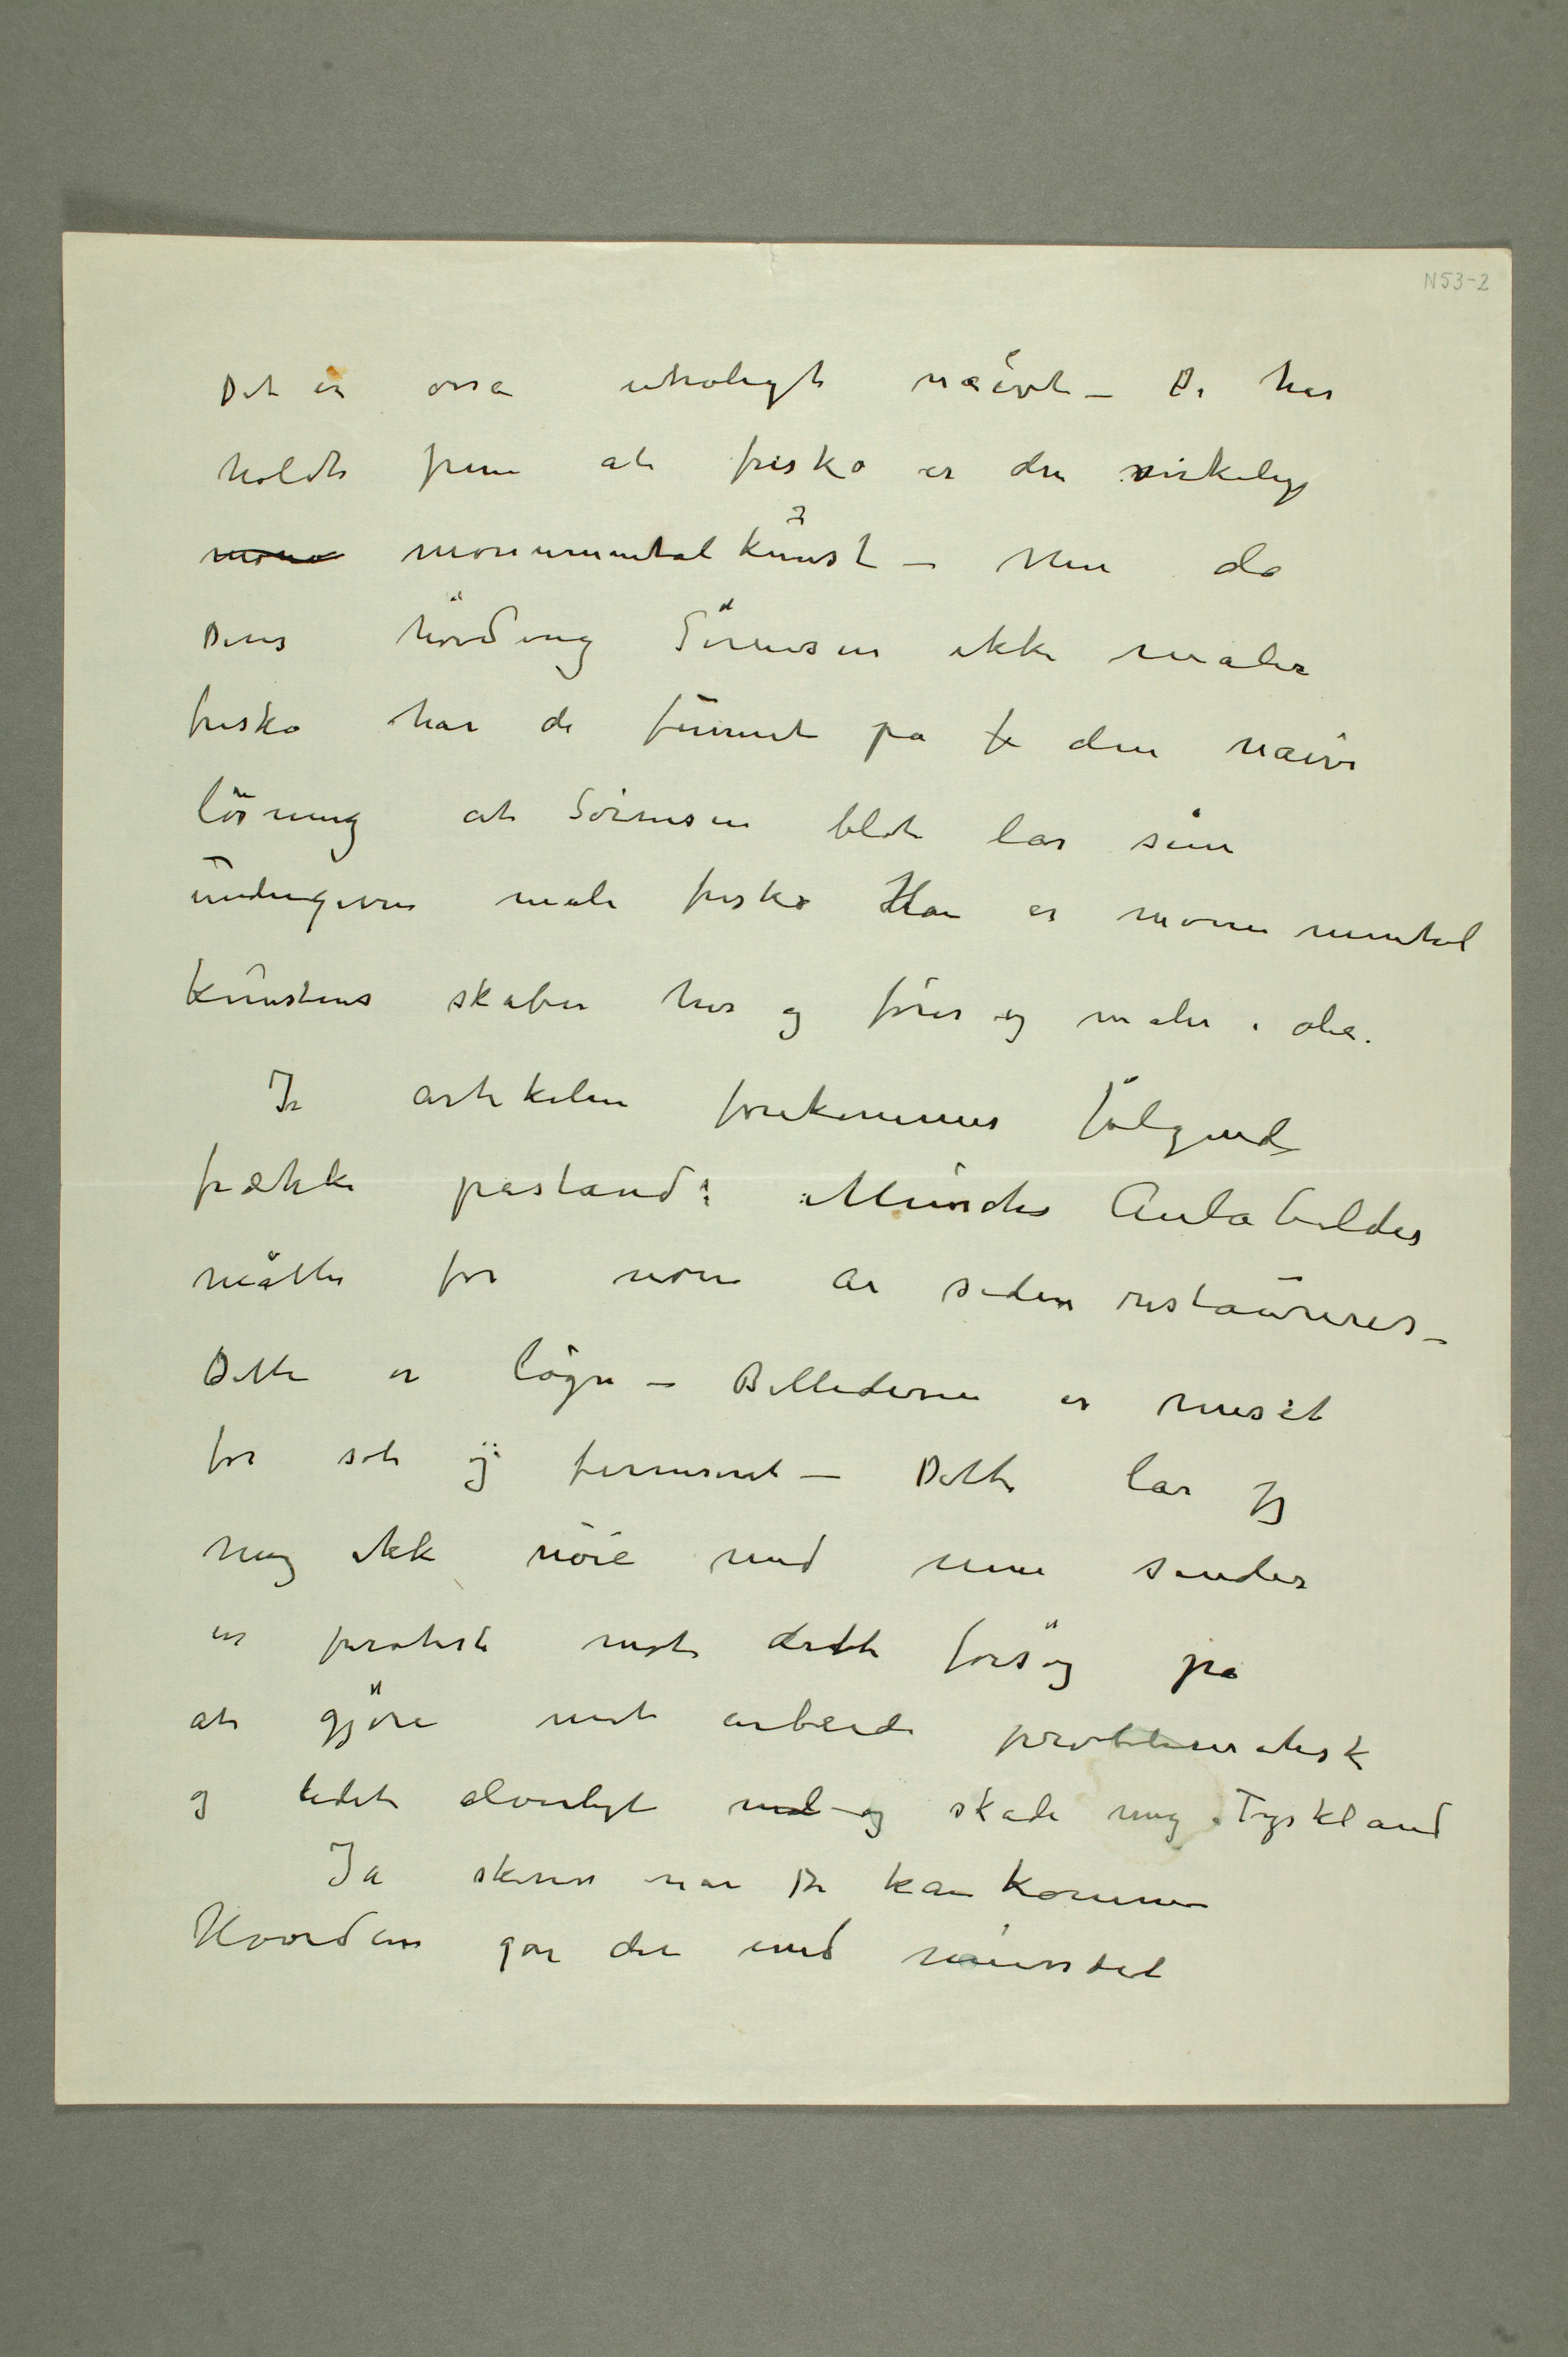 N53-2
Det er osså utroligt naivt – De har
holdt frem at fresko er den virkelig
mono monumentalkunst – Men da
Deres hövding Sörensen ikke maler
fresko har de funnet på fr den naive
lösning at Sörensen blot lar sine
undergivne male fresko Han er monumental
kunstens skaber her og förer og maler i olie.
I artikelen forekommer fölgende
frække påstand: Munchs Aulabilder
måtte for noen år siden restaureres –
Dette er lögn – Billederne er renset
for sot og fernisert – Dette lar jeg
mig ikke nöie med men sender
en protest mot dette forsög på
at gjöre mit arbeide problematisk
og ledet alvorligt med og skade mig i Tyskland
Ja skriv når De kan komme
Hvordan går det med